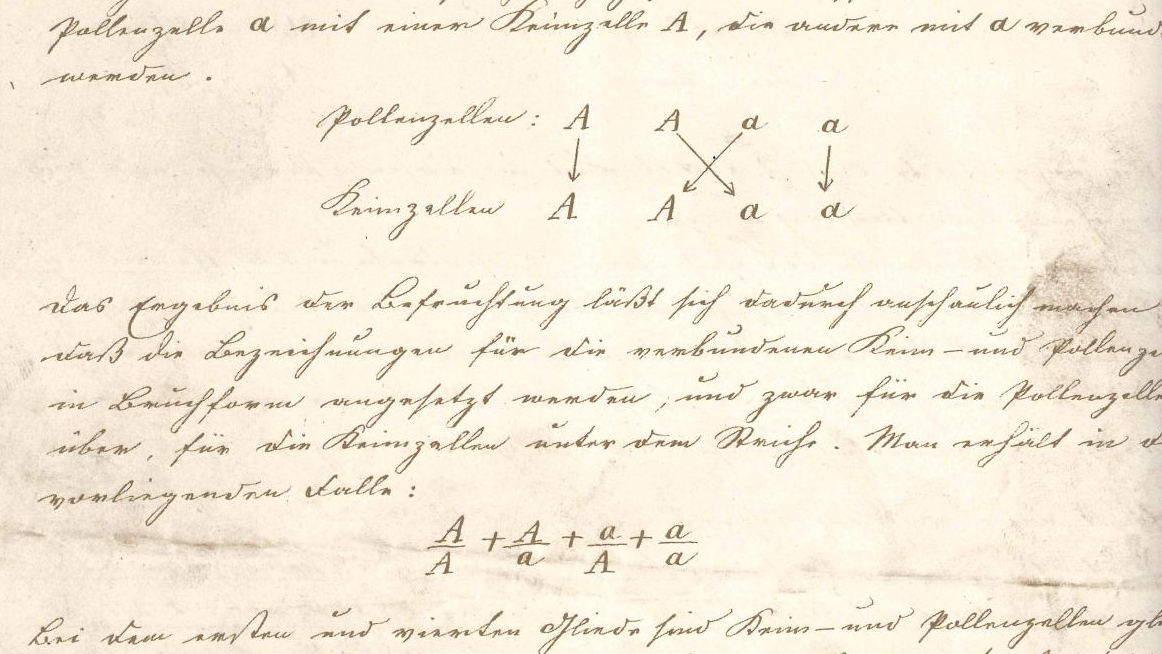 Pollenzelle a mit einer Keimzelle A, die andere mit a verbund
werden.
Pollenzellen: A A a a
Keimzellen A A a a
Das Ergebnis der Befruchtung läßt sich dadurch anschaulich machen
daß die Bezeichnungen für die verbundenen Keim- und Pollenze
in Bruchform angesetzt werden, und zwar für die Pollenzelle
über, für die Keimzellen unter dem Striche. Man erhält in d
vorliegenden Falle:
A/A + A/a + a/A + a/a
Bei dem ersten und vierten Gliede sind Keim- und Pollenzellen gle